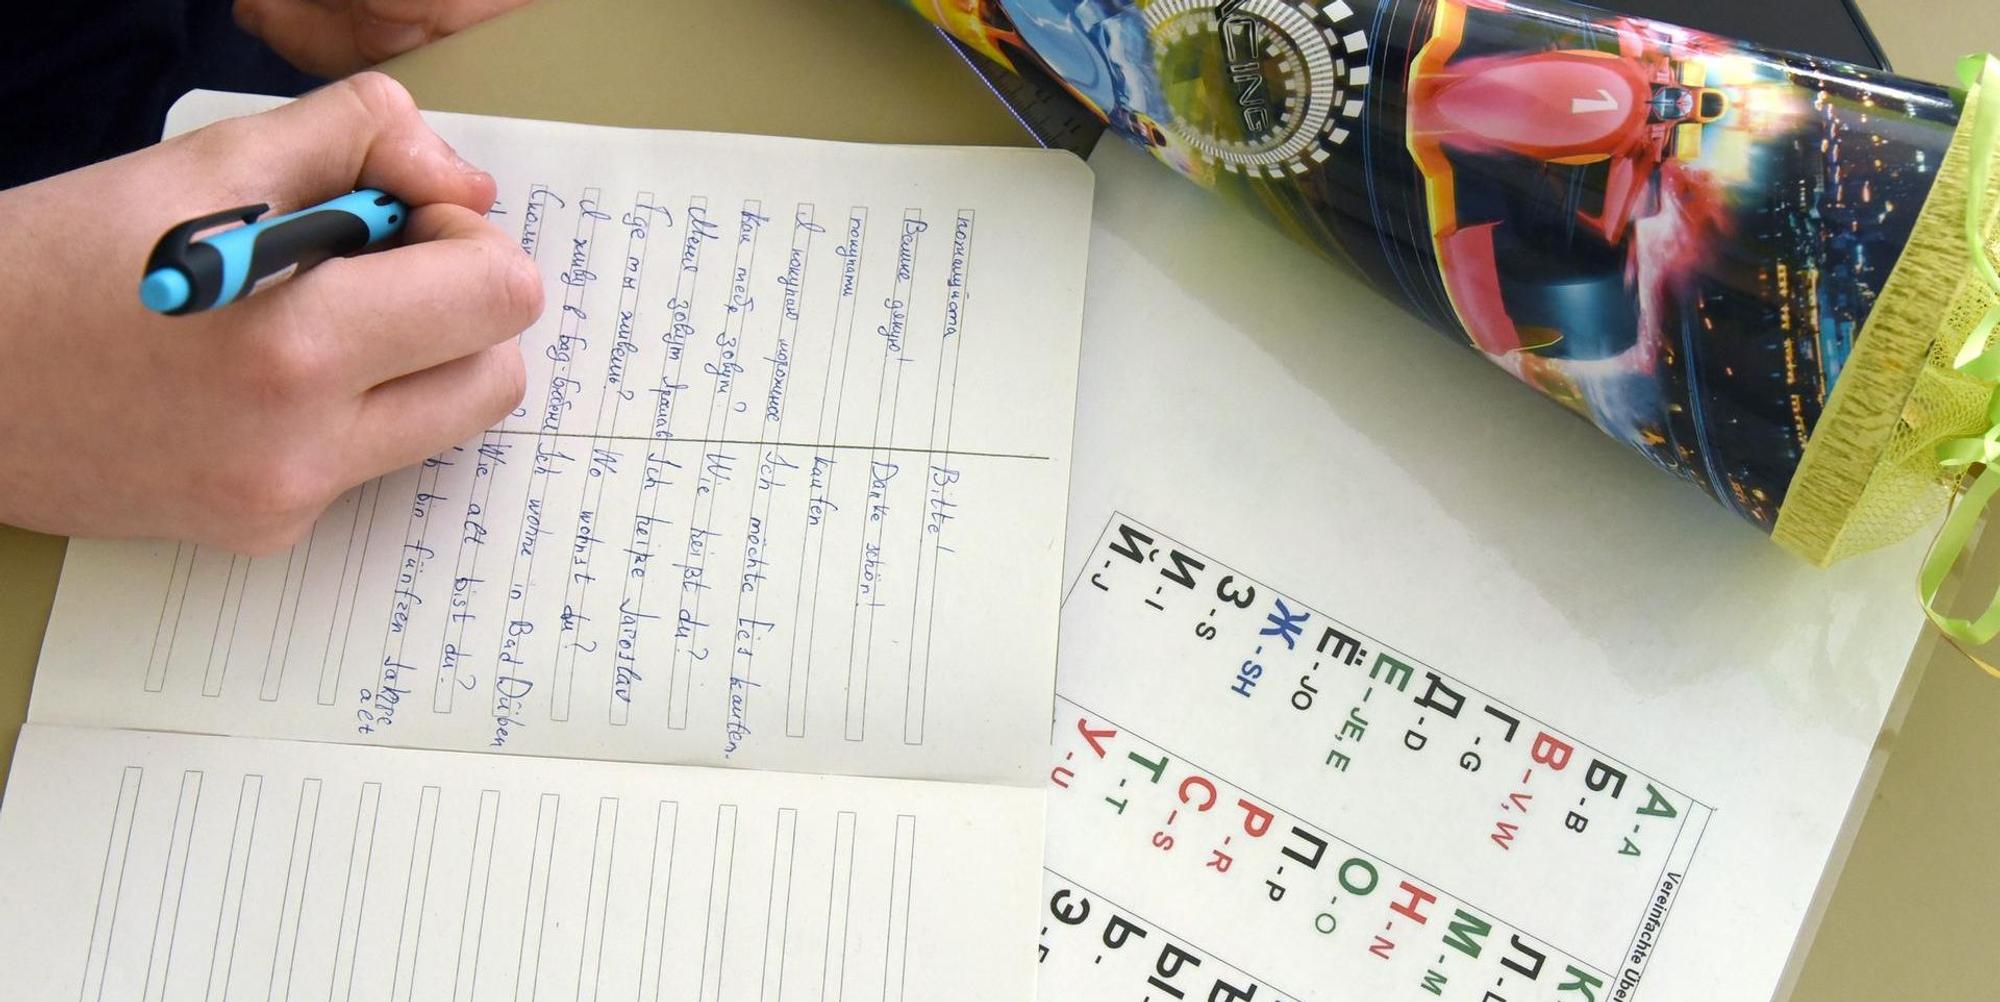 пожалуйста Bitte!
Велике дякую! Danke schön!
покупати kaufen
Я покупаю мороженое Ich möchte Eis kaufen.
Как тебя зовут? Wie heißt du?
Меня зовут Ярослав Ich heiße Jaroslav
Где ты живешь? Wo wohnst du?
Я живу в Бад-Дюбене Ich wohne in Bad Düben
Сколько ? Wie alt bist du?
bin fünfzen Jahre alt
RACING
1
Vereinfachte
А - A
Б - B
В - V, W
Г - G
Д - D
Е - JE, E
Ё - JO
Ж - SH
З - S
И - I
Й - J
К
Л -
М - M
Н - N
О - O
П - P
Р - R
С - S
Т - T
У - U
Ъ
Ы
Ь -
Э -